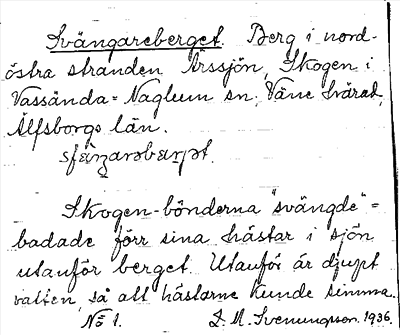 Svängareberget. Berg i nord-
östra stranden Ärssjön, Skogen i
Vassända-Naglum sn, Väne härad,
Älfsborgs län.
sfäŋarəbærjət.
Skogen-bönderna "svängde" =
badade förr sina hästar i sjön
utanför berget. Utanför är djupt
vatten, så att hästarne kunde simma.
No 1. D. A. Svenungson. 1936.